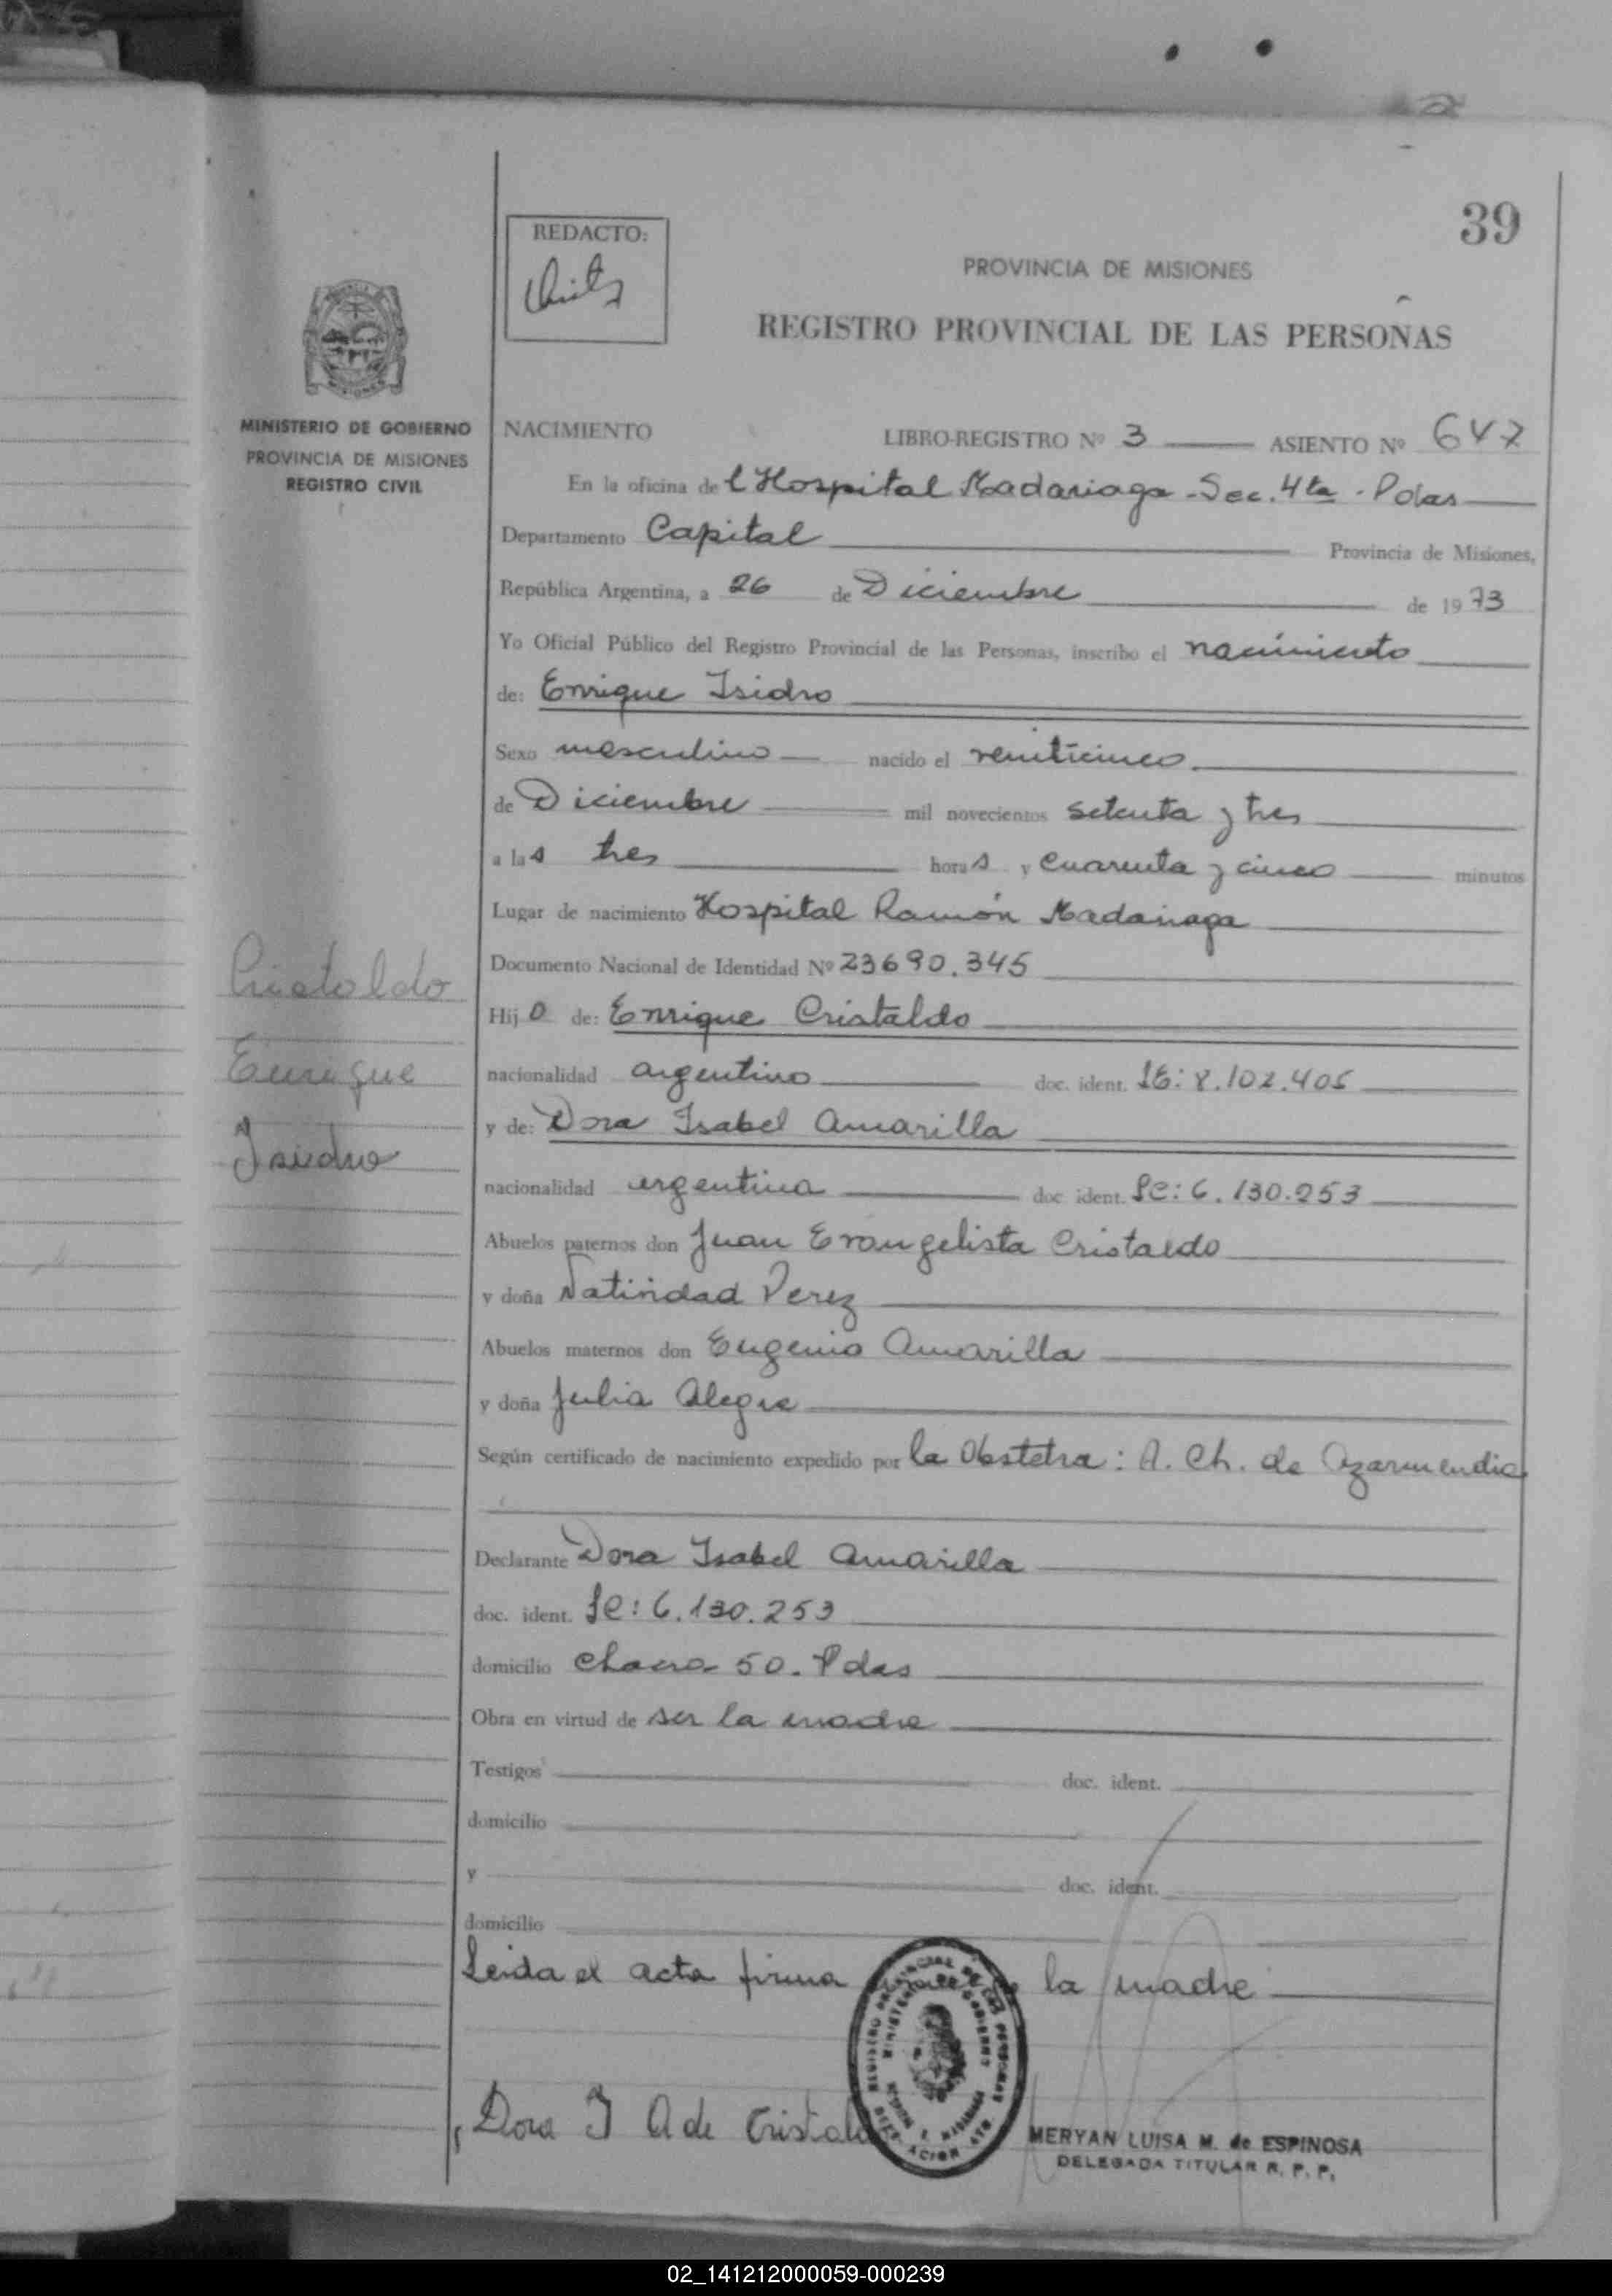 39
REDACTO:
PROVINCIA DE MISIONES
REGISTRO PROVINCIAL DE LAS PERSONAS
MINISTERIO DE GOBIERNO
PROVINCIA DE MISIONES
REGISTRO CIVIL
NACIMIENTO LIBRO-REGISTRO Nº 3 ASIENTO Nº 647
En la oficina del Hospital Madariaga - Sec. 4ta - Pdas
Departamento Capital Provincia de Misiones,
República Argentina, a 26 de Diciembre de 1973
Yo Oficial Público del Registro Provincial de las Personas, inscribo el nacimiento
de: Enrique Isidro
Sexo masculino nacido el veinticinco
de Diciembre mil novecientos setenta y tres
a las tres horas y cuarenta y cinco minutos
Lugar de nacimiento Hospital Ramón Madariaga
Documento Nacional de Identidad Nº 23690.345
Cristaldo
Enrique
Isidro
Hijo de: Enrique Cristaldo
nacionalidad argentino doc. ident. LE: 8.102.405
y de: Dora Isabel Amarilla
nacionalidad argentina doc. ident. LC: 6.130.253
Abuelos paternos don Juan Evangelista Cristaldo
y doña Natividad Perez
Abuelos maternos don Eugenio Amarilla
y doña Julia Alegre
Según certificado de nacimiento expedido por la Obstetra: A. Ch. de Azarmendia
Declarante Dora Isabel Amarilla
doc. ident. LC: 6.130.253
domicilio Chacra 50. Pdas
Obra en virtud de ser la madre
Testigos doc. ident.
domicilio
y doc. ident.
domicilio
Leida el acta firma la madre
Dora I A de Cristaldo
MERYAN LUISA M. de ESPINOSA
DELEGADA TITULAR R. P. P.
02_141212000059-000239